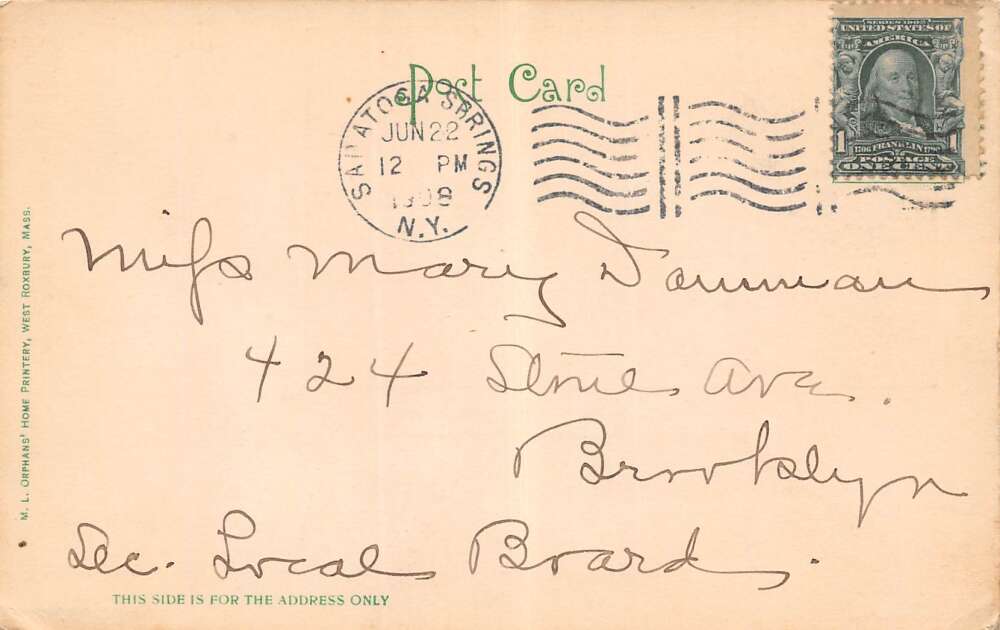 SERIES 1902
UNITED STATES OF
AMERICA
1 1
1706 FRANKLIN 1790
POSTAGE
ONE CENT
Post Card
SARATOGA SPRINGS
JUN 22
12 PM
1908
N.Y.
Miss Mary
424 Stone Ave.
Brooklyn
Sec. Local Board.
THIS SIDE IS FOR THE ADDRESS ONLY
M. L. ORPHANS' HOME PRINTERY, WEST ROXBURY, MASS.